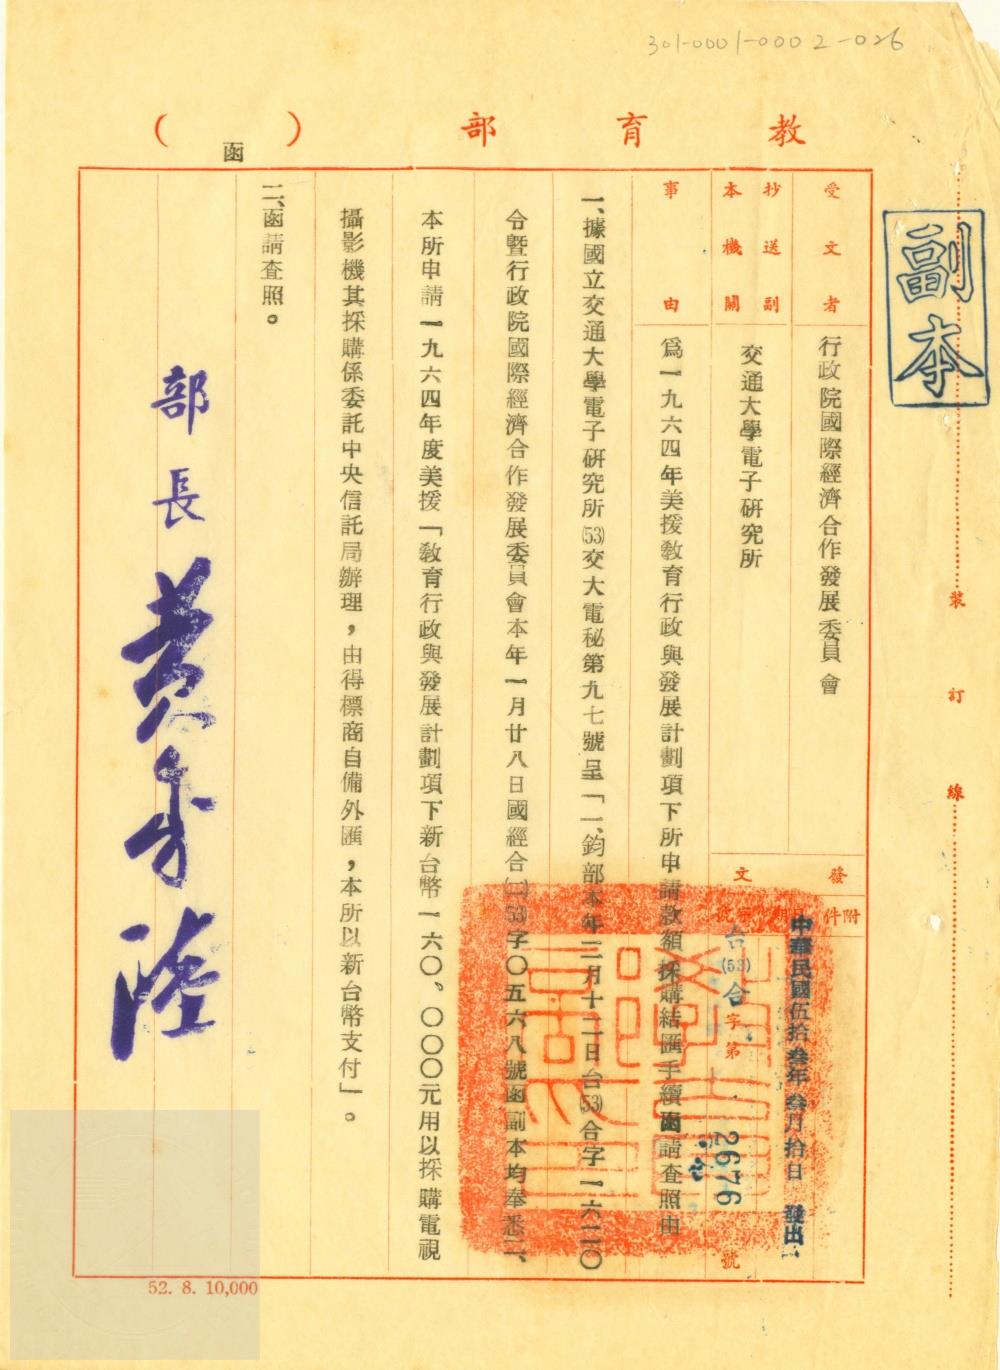 301-0001-0002-026
教育部（函）
副本
受文者
行政院國際經濟合作發展委員會
抄送副本機關
交通大學電子研究所
發文
附件
日期
字號
中華民國伍拾叁年叁月拾日發出
台(53)合字第2676號
事由
爲一九六四年美援教育行政與發展計劃項下所申請款額採購結匯手續函請查照由
一、據國立交通大學電子研究所(53)交大電秘第九七號呈「一、鈞部本年二月十二日台(53)合字一六二〇
令暨行政院國際經濟合作發展委員會本年一月廿八日國經合(二)53字〇五六八號函副本均奉悉二、
本所申請一九六四年度美援「教育行政與發展計劃項下新台幣一六〇、〇〇〇元用以採購電視
攝影機其採購係委託中央信託局辦理，由得標商自備外匯，本所以新台幣支付」。
二、函請查照。
部長黃季陸
裝訂線
52. 8. 10,000